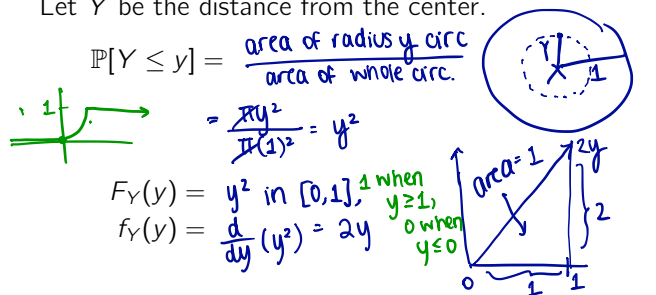 Let Y be the distance from the center.
ℙ[Y ≤ y] = area of radius y circ / area of whole circ.
= πy² / π(1)² = y²
F_Y(y) = y² in [0,1], 1 when y≥1, 0 when y≤0
f_Y(y) = d/dy (y²) = 2y
1
Y
1
area=1
2y
2
0
1
1